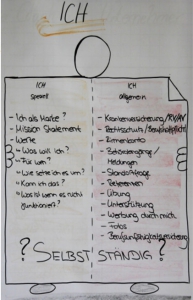 ICH
ICH
speziell
- Ich als Marke?
- Mission Statement
- Werte
↳ Was will ich?
↳ Für wen?
↳ Wie setze ich es um?
↳ Kann ich das?
↳ Was ist wenn es nicht
funktioniert?
ICH
allgemein
- Krankenversicherung/RV/AV
- Rechtsschutz/Berufshaftpflicht
- Firmenkonto
- Behördengänge/
Meldungen
- Standortfrage
- Netzwerken
- Übung
- Unterstützung
- Werbung durch mich
- Fotos
- Berufsunfähigkeitsversicherung
? SELBSTSTÄNDIG?